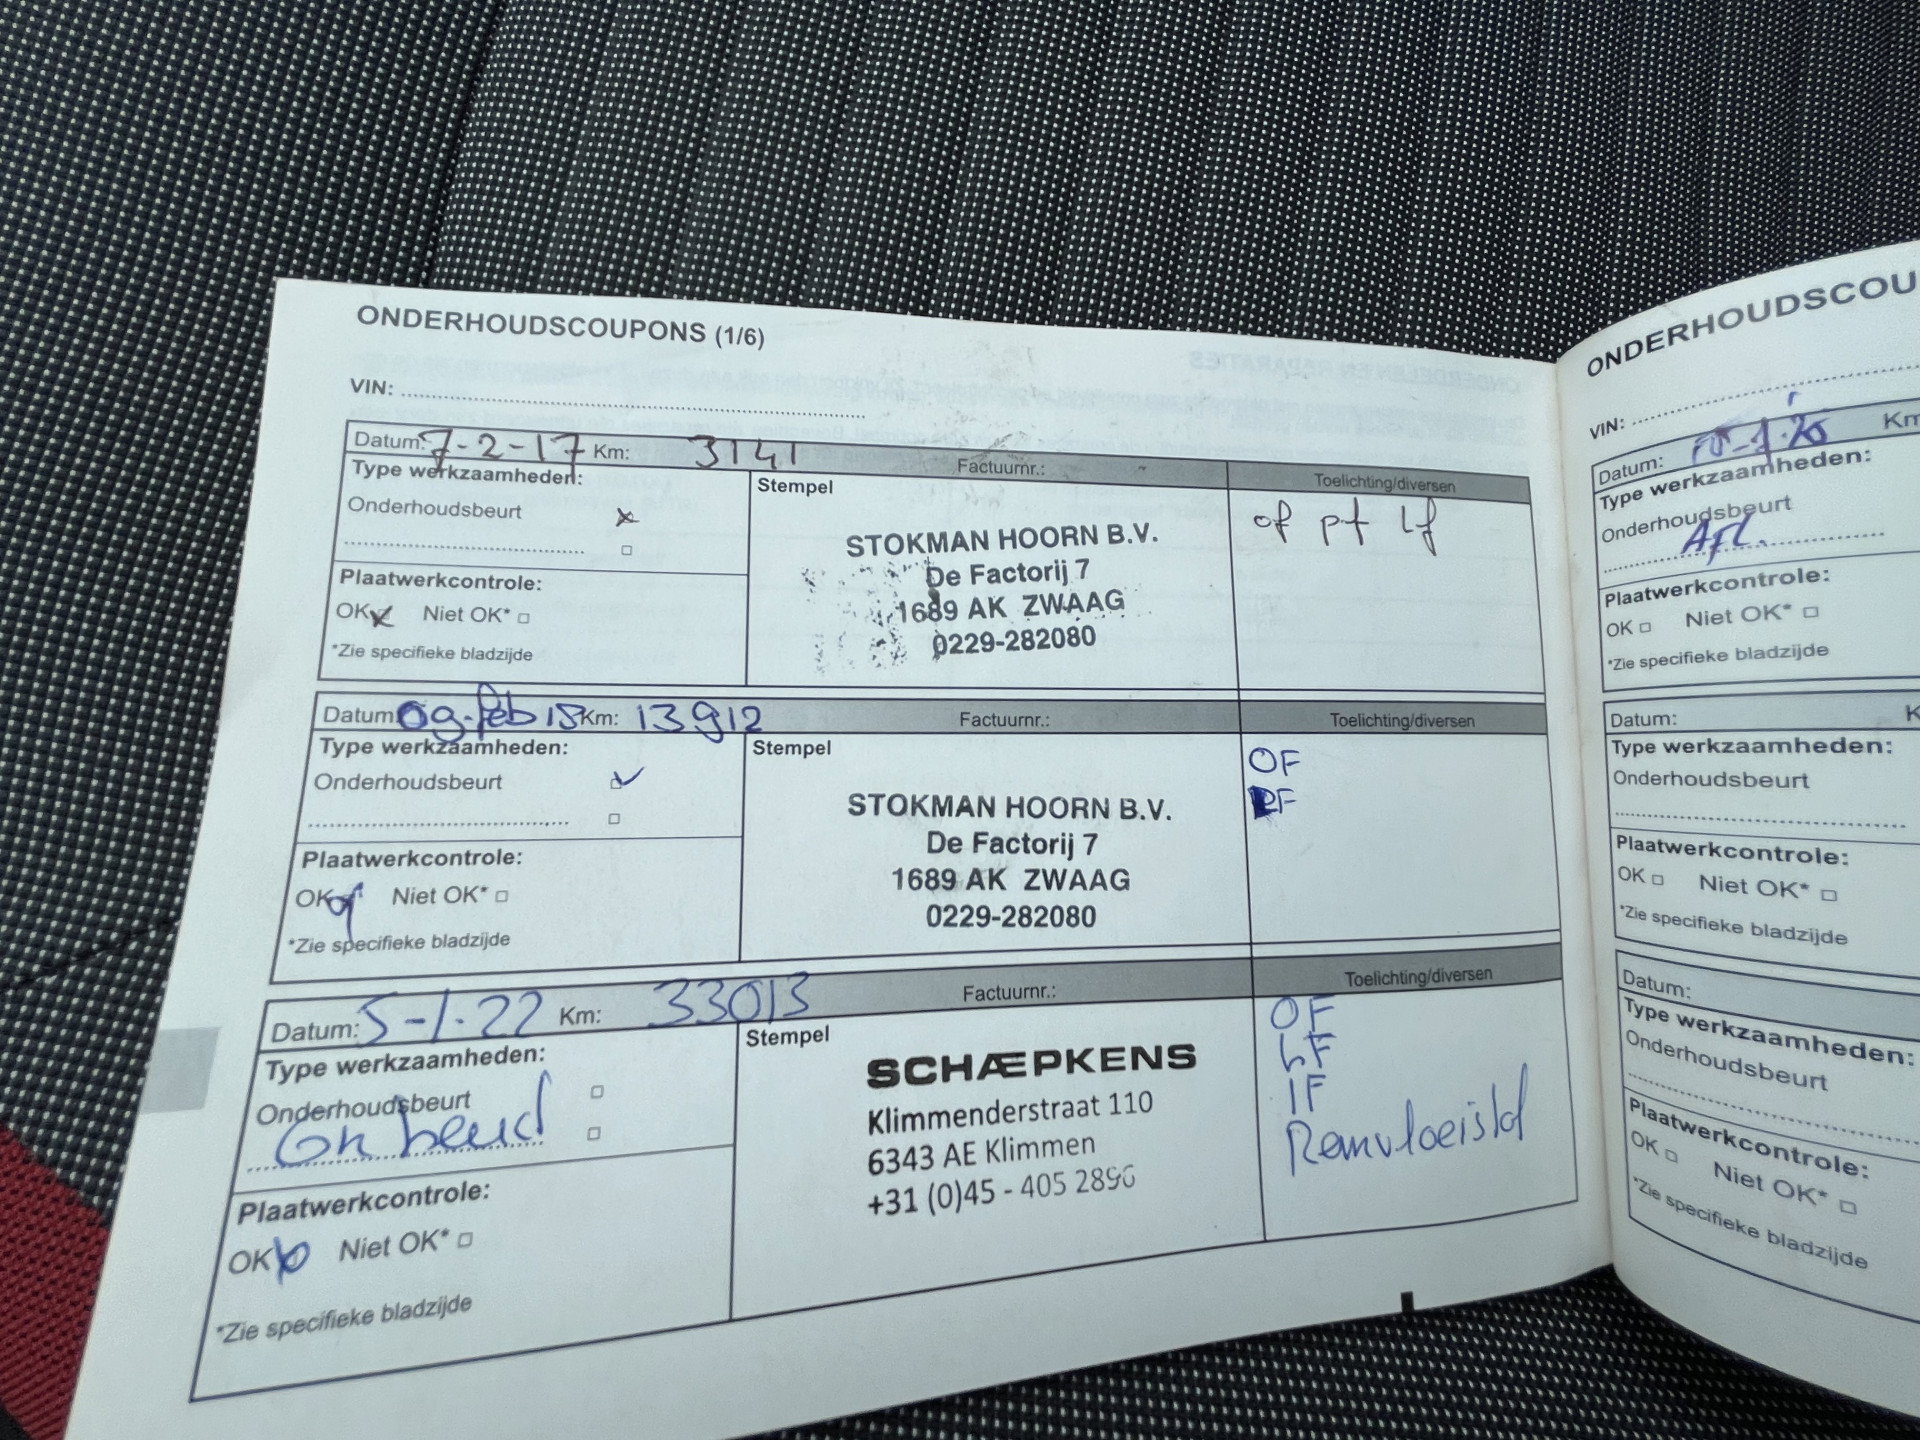 ONDERHOUDSCOUPONS (1/6)
VIN:
Datum: 7-2-17 Km: 3141 Factuurnr.: Toelichting/diversen
Type werkzaamheden:
Stempel
Onderhoudsbeurt
of pf lf
STOKMAN HOORN B.V.
De Factorij 7
1689 AK ZWAAG
0229-282080
Plaatwerkcontrole:
OK Niet OK*
*Zie specifieke bladzijde
Datum: 09-feb 18 Km: 13912 Factuurnr.: Toelichting/diversen
Type werkzaamheden:
Stempel
Onderhoudsbeurt
OF
STOKMAN HOORN B.V.
De Factorij 7
1689 AK ZWAAG
0229-282080
Plaatwerkcontrole:
OK Niet OK*
*Zie specifieke bladzijde
Datum: 5-1-22 Km: 33013 Factuurnr.: Toelichting/diversen
Type werkzaamheden:
Stempel
Onderhoudsbeurt
OF
LF
IF
Remvloeistof
SCHÆPKENS
Klimmenderstraat 110
6343 AE Klimmen
+31 (0)45 - 405 2896
Plaatwerkcontrole:
OK Niet OK*
*Zie specifieke bladzijde
ONDERHOUDSCOU
VIN:
Datum: Km
Type werkzaamheden:
Onderhoudsbeurt
Afl.
Plaatwerkcontrole:
OK Niet OK*
*Zie specifieke bladzijde
Datum: K
Type werkzaamheden:
Onderhoudsbeurt
Plaatwerkcontrole:
OK Niet OK*
*Zie specifieke bladzijde
Datum:
Type werkzaamheden:
Onderhoudsbeurt
Plaatwerkcontrole:
OK Niet OK*
*Zie specifieke bladzijde